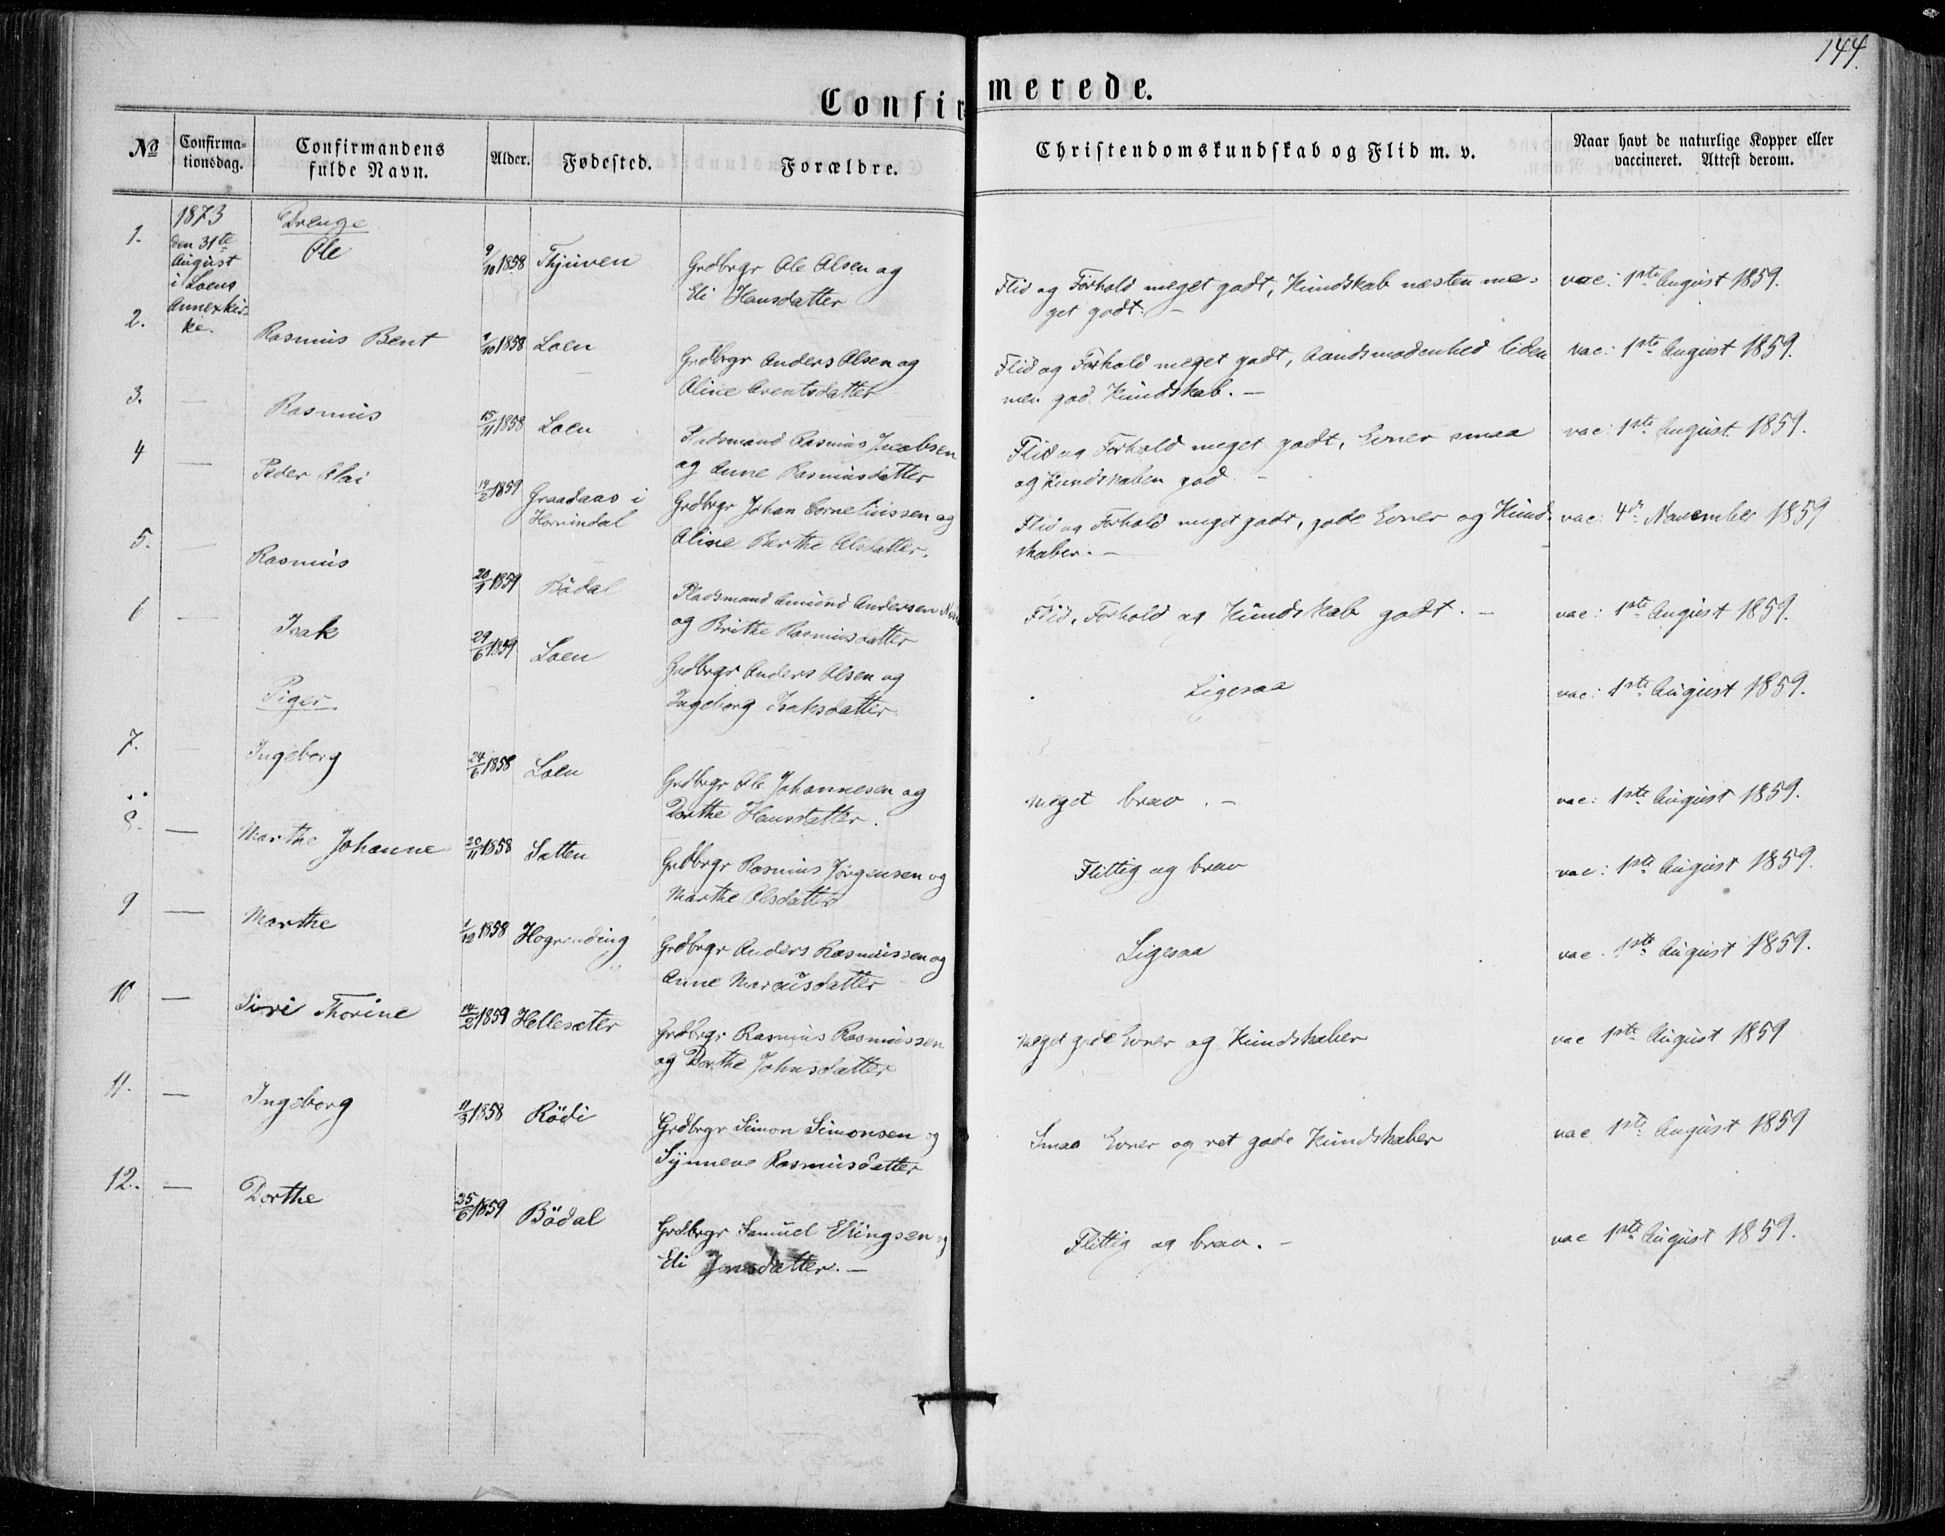 144.
Confirmerede.
No
Confirma-
tionsdag.
Confirmandens
fulde Navn.
Alder.
Fødested.
Forældre.
Christendomskundskab og Flid m. v.
Naar havt de naturlige Kopper eller
vaccineret. Attest derom.
1873
den 31te
August
i Loens
Annexkir-
ke.
Drenge
1. Ole 9/10 1858 Thjuven Grdbrgr Ole Olsen og
Eli Hansdatter
Flid og Forhold meget godt, Kundskab næsten me-
get godt. —
vac: 1ste August 1859.
2. Rasmus Bent 9/10 1858 Loen Grdbrgr Anders Olsen og
Oline Arentsdatter
Flid og Forhold meget godt, Aandsmodenhed liden
men god Kundskab. —
vac: 1ste August 1859.
3. — Rasmus 15/11 1858 Loen Rasmus Jacobsen
og Anne Rasmusdatter
Flid og Forhold meget godt, Evner smaa
og Kundskaben god. —
vac: 1ste August 1859.
4 — Peder Olai 14/2 1859 Graadaas i
Hornindal
Grdbrgr Johan Corneliussen og
Oline Berthe Olsdatter.
Flid og Forhold meget godt, gode Evner og Kund-
skaber. —
vac: 4de November 1859
5. — Rasmus 20/1 1859 Bödal Pladsmand Amund Andersen
og Brithe Rasmusdatter
Flid, Forhold og Kundskab godt. —
vac: 1ste August 1859.
6 — Isak 29/6 1859 Loen Grdbrgr Anders Olsen og
Ingeborg Isaksdatter
Ligesaa
vac: 1ste August 1859.
Piger.
7. — Ingeborg 24/6 1858 Loen Grdbrgr Ole Johannesen og
Dorthe Hansdatter.
Meget brav. —
vac: 1ste August 1859.
8. — Marthe Johanne 20/11 1858 Sætten Grdbrgr Rasmus Jörgensen og
Marthe Olsdatter
Flittig og brav
vac: 1ste August 1859.
9 — Marthe 1/12 1858 Hogrending Grdbrgr Anders Rasmussen og
Anne Marcusdatter
Ligesaa
vac. 1ste August 1859.
10 — Siri Thorine 14/2 1859 Hellesæter Grdbrgr Rasmus Rasmussen
og Dorthe Johnsdatter
Meget gode Evner og Kundskaber
vac 1ste August 1859
11. — Ingeborg 11/3 1858 Rödi Grdbrgr Simon Simonsen og
Synneve Rasmusdatter
Smaa Evner og ret gode Kundskaber
vac 1ste August 1859
12. — Dorthe 25/6 1859 Bödal Grdbrgr Samuel Ellingsen og
Eli Jonsdatter. —
Flittig og brav. —
vac 1ste August 1859.